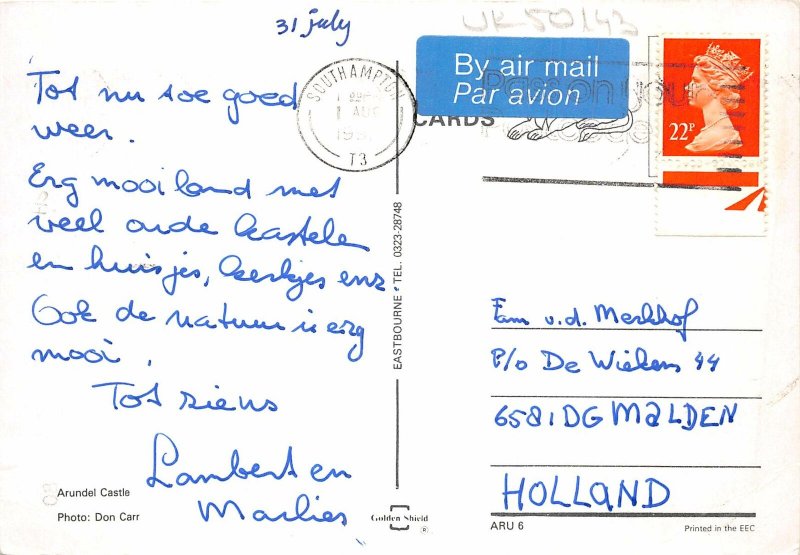 31 july
UK50143
Tot nu toe goed
weer.
Erg mooi land met
veel oude kastelen
en huisjes, kerkjes enz.
Ook de natuur is erg
mooi.
Tot ziens
Lambert en
Marlies
Arundel Castle
Photo: Don Carr
SOUTHAMPTON
1 AUG
T3
By air mail
Par avion
CARDS
22P
EASTBOURNE • TEL. 0323-28748
Fam v.d. Merkhof
P/o De Wieken 44
6581 DG MALDEN
HOLLAND
Golden Shield
®
ARU 6
Printed in the EEC